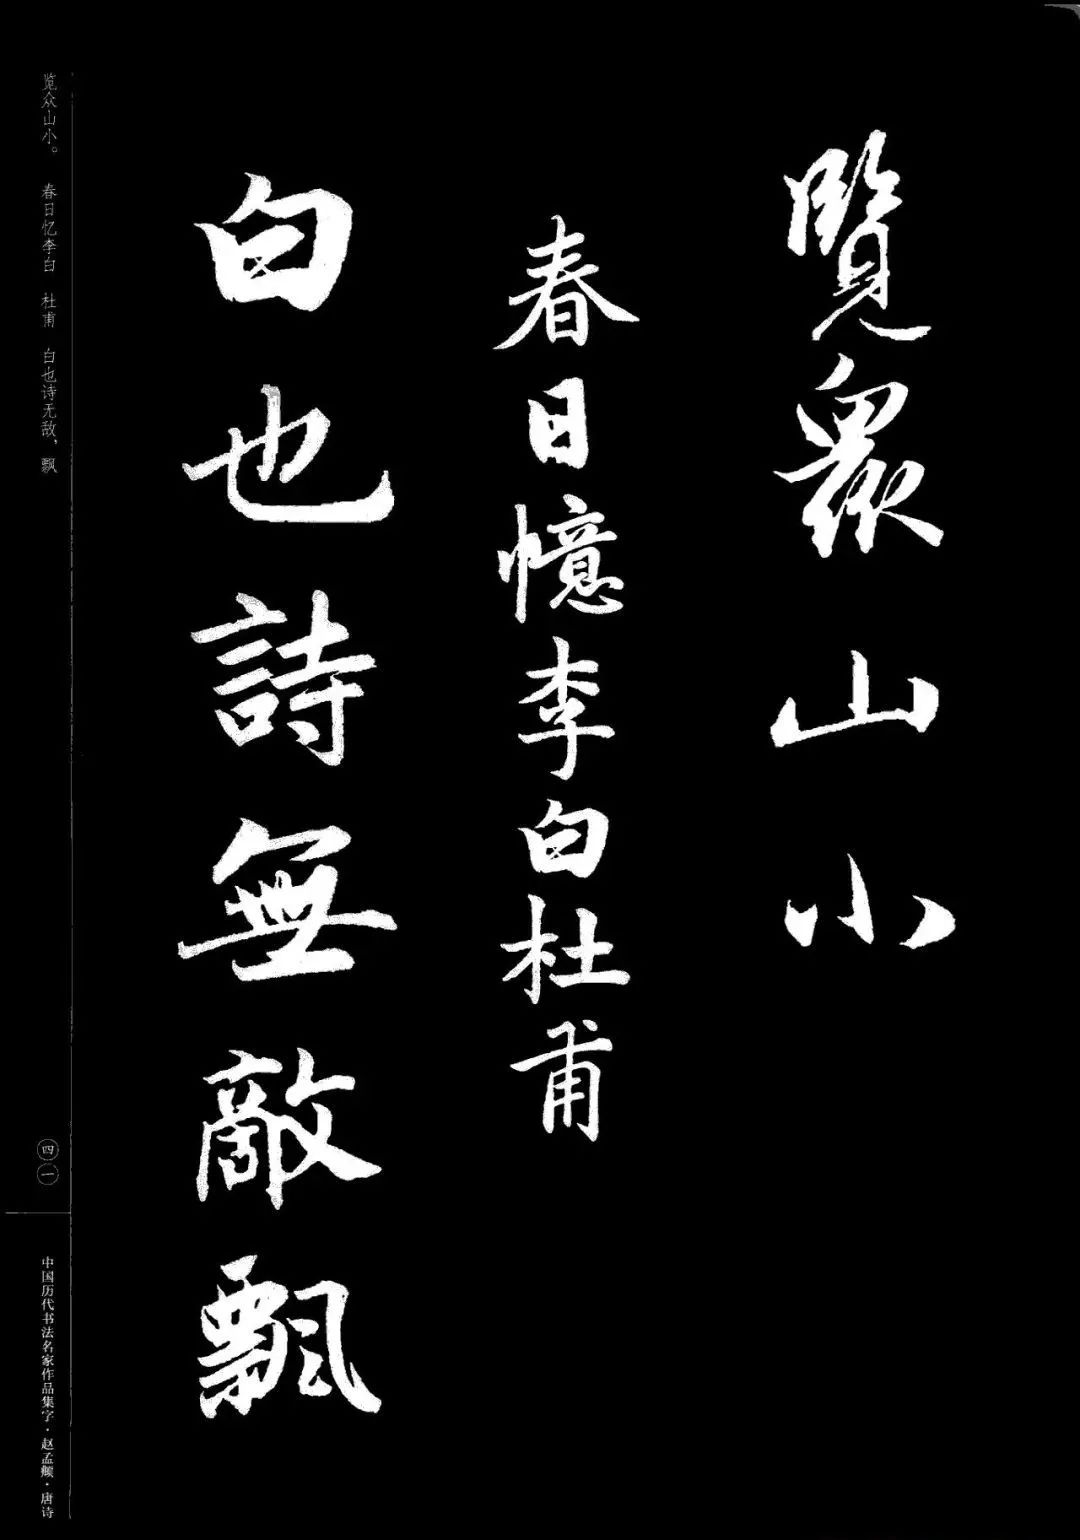 覽衆山小
春日憶李白杜甫
白也詩無敵飄
览众山小。 春日忆李白 杜甫 白也诗无敌，飘
四一
中国历代书法名家作品集字·赵孟頫·唐诗